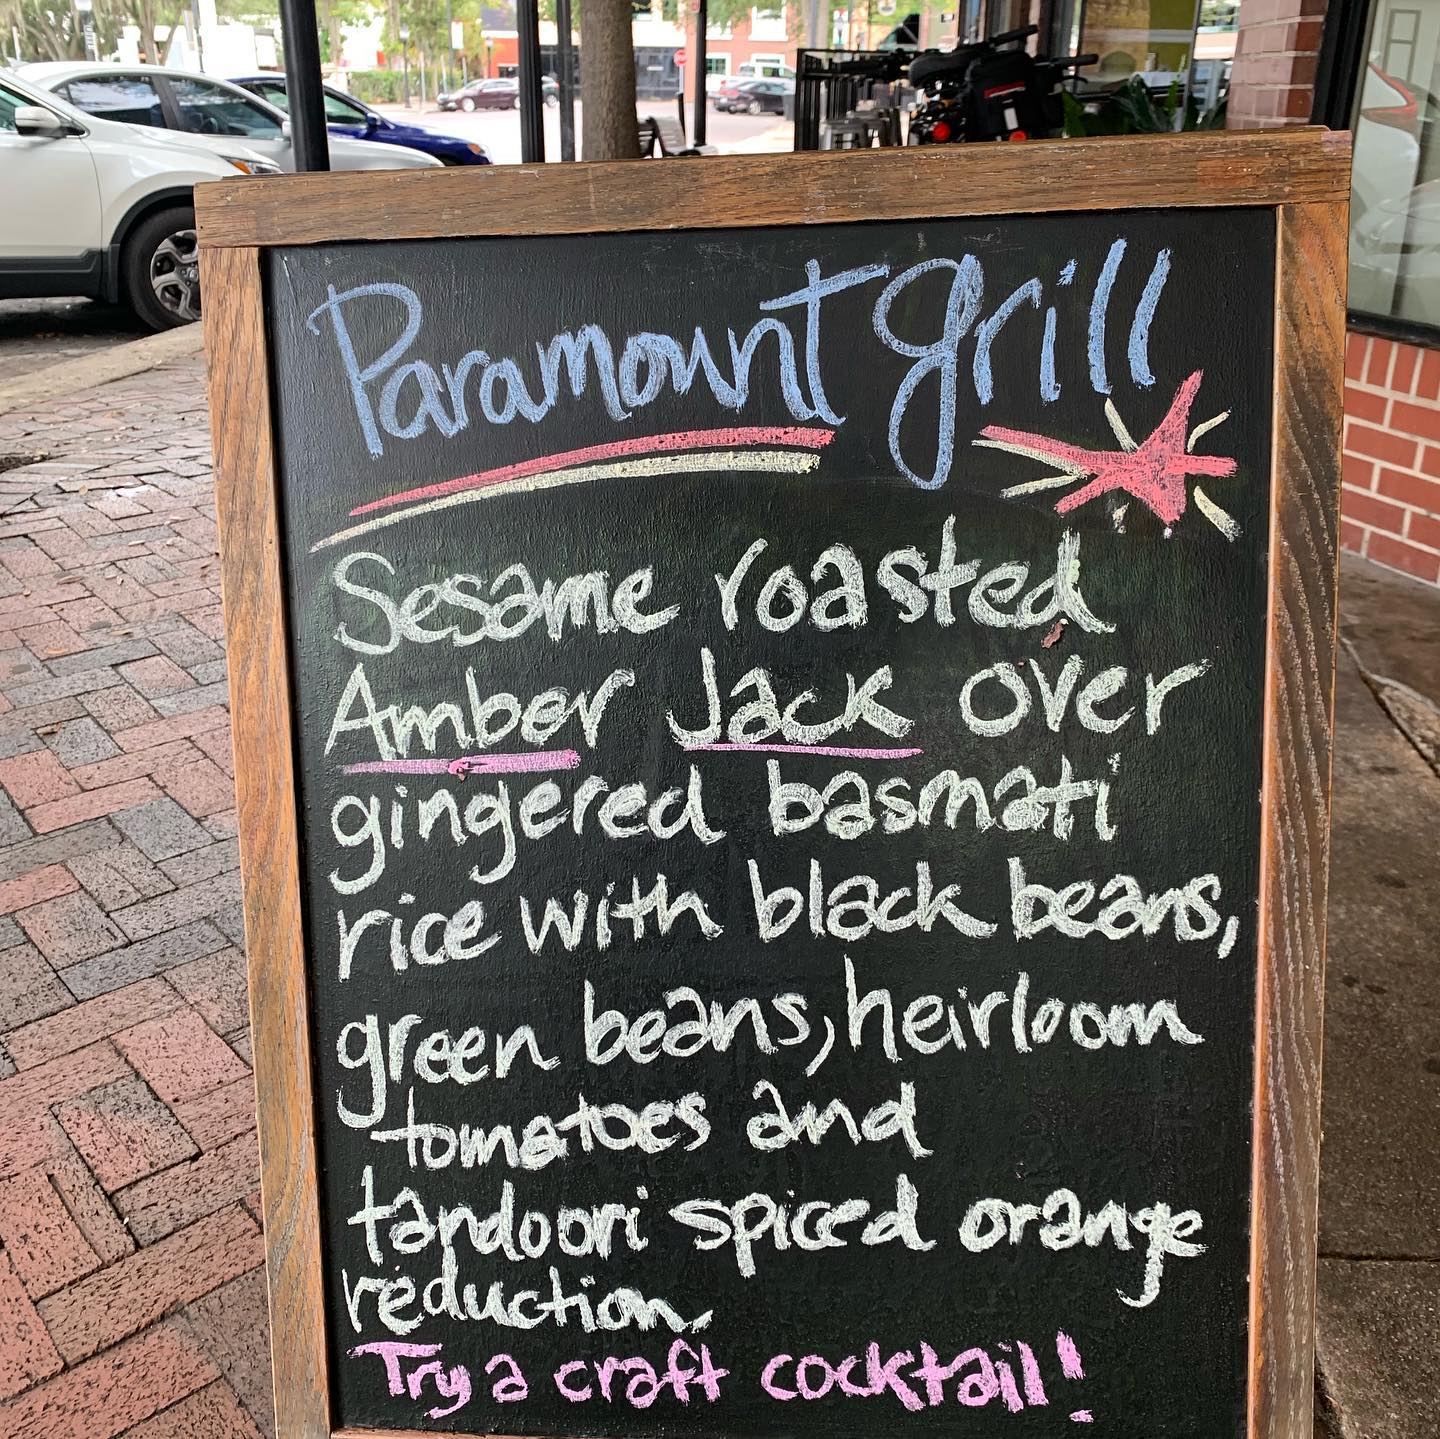 Paramount grill
Sesame roasted
Amber Jack over
gingered basmati
rice with black beans,
green beans, heirloom
tomatoes and
tandoori spiced orange
reduction.
Try a craft cocktail!